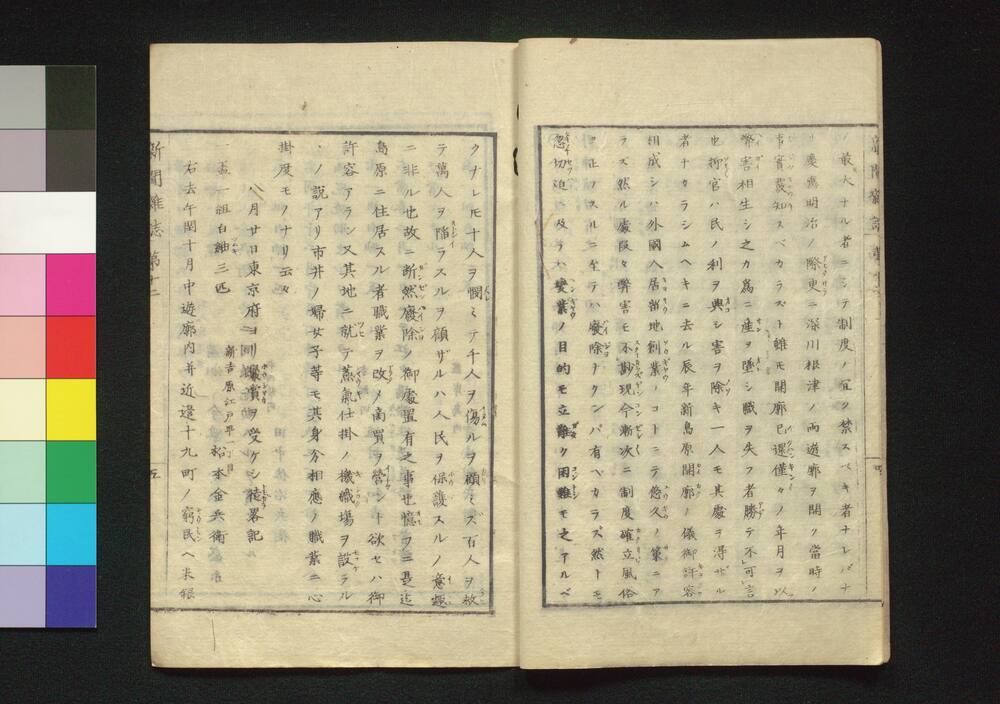 ノ最大ナル者ニシテ制度ノ宜ク禁スベキ者ナレバナ
慶應明治ノ際更ニ深川根津ノ両遊廓ヲ開ク當時ノ
事實豫知スベカラズト雖モ開廓已還僅々ノ年月ヲ以
弊害相生シ之カ為ニ産ヲ墜シ職ヲ失フ者勝テ不可言
也抑官ハ民ノ利ヲ興シ害ヲ除キ一人モ其處ヲ得ザル
者ナカラシムヘキニ去ル辰年新島原開廓ノ儀御許容
相成シハ外國人居留地創業ノコトニテ悠久ノ策ニア
ラズ然ル處段々弊害モ不尠現今漸次ニ制度確立風俗
正ノスルニ至テハ廢除ナクンバ有ベカラズ然トモ
忽切迫ニ及テハ変業ノ目的モ立難ク困難モ之アルベ
クナレ𪜈十人ヲ憫ミテ千人ヲ傷ルヲ顧ミズ百人ヲ救
テ萬人ヲ陥ラスルヲ顧ザルハ人民ヲ保護スルノ意趣
ニ非ル也故ニ断然廢除ノ御處置有之事也憶フニ是迄
島原ニ住居スル者職業ヲ改メ商買ヲ營ント欲セハ御
許容アラン又其地ニ就テ蒸氣仕掛ノ機織場ヲ設ラル
ヽノ説アリ市井ノ婦女子等モ其身分相應ノ職業ニ心
掛度モノナリ云々
八月廿日東京府ヨリ褒賞ヲ受ケシ徒畧記
新吉原江戸町一丁目
一盃一組白紬三匹 松本金兵衛
右去午閏十月中遊廓内并近邊十九町ノ窮民ヘ米銀
新聞雑誌 第十二
五